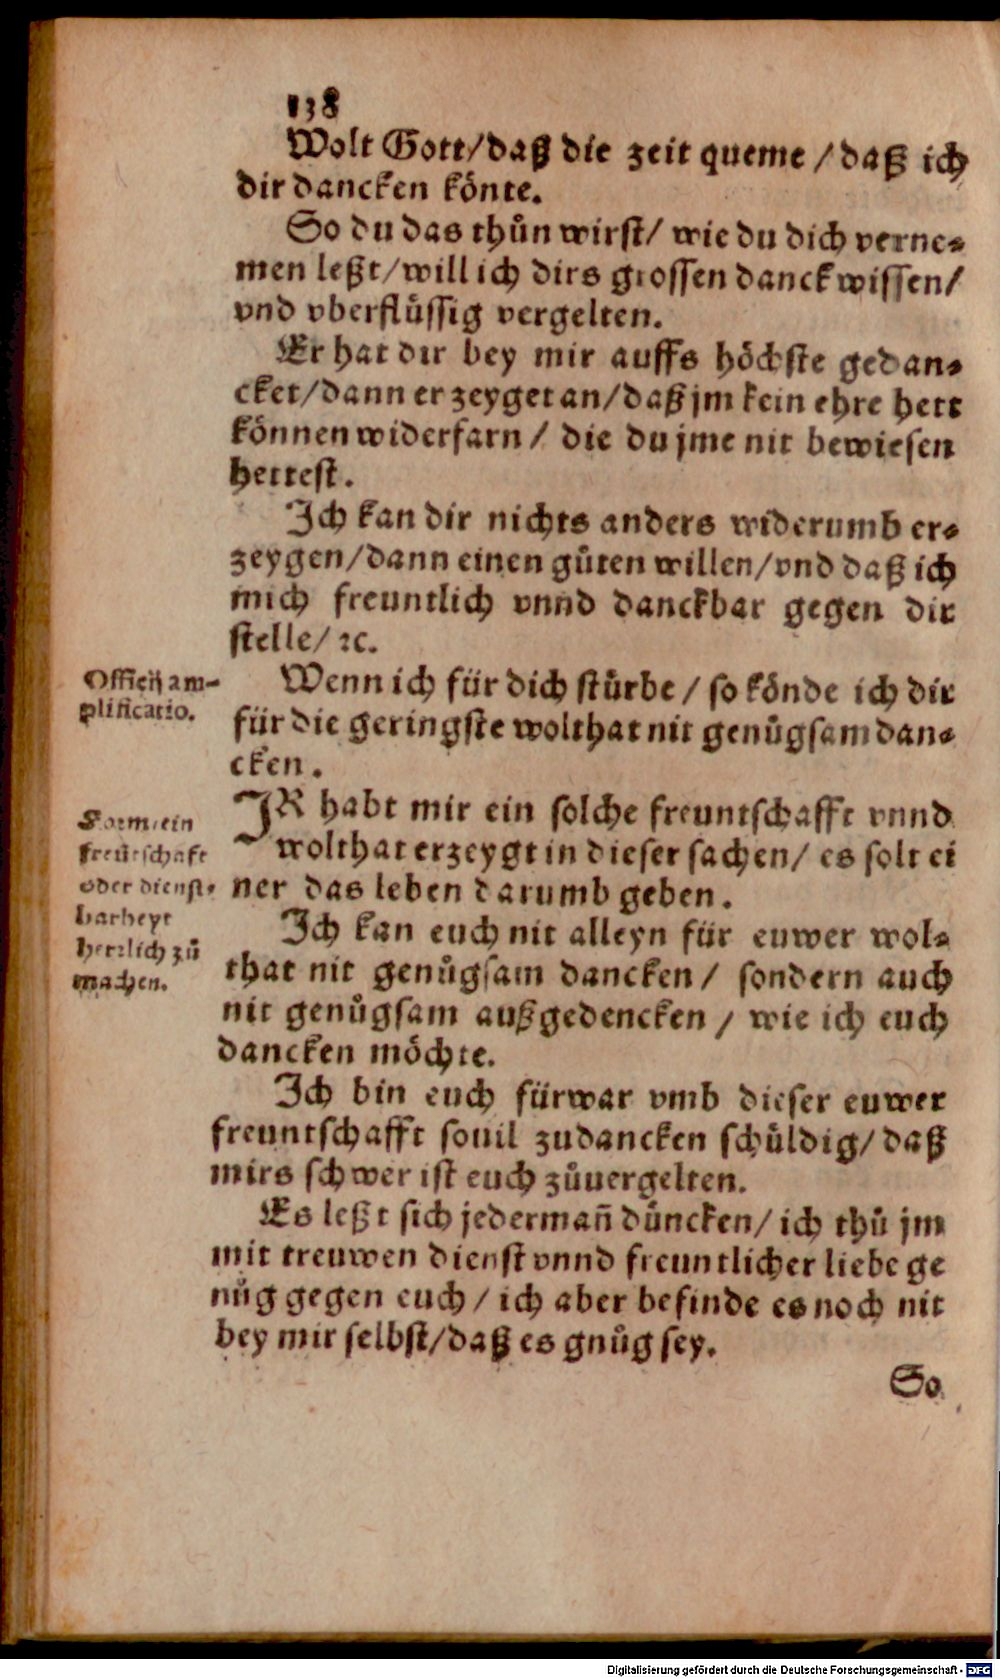 138
Wolt Gott/daß die zeit queme/daß ich
dir dancken könte.
So du das thůn wirst/ wie du dich verne-
men leßt/will ich dirs grossen danck wissen/
vnd vberflüssig vergelten.
Er hat dir bey mir auffs höchste gedan-
cket/dann er zeyget an/daß jm kein ehre hett
können widerfarn/ die du jme nit bewiesen
hettest.
Ich kan dir nichts anders widerumb er-
zeygen/dann einen gůten willen/vnd daß ich
mich freuntlich vnnd danckbar gegen dir
stelle/ ꝛc.
Officij am-
plificatio.
Wenn ich für dich stürbe/ so könde ich dir
für die geringste wolthat nit genůgsam dan-
cken.
Form/ein
freütschaft
oder dienst-
barheyt
herrlich zů
machen.
IR habt mir ein solche freuntschafft vnnd
wolthat erzeygt in dieser sachen/ es solt ei
ner das leben darumb geben.
Ich kan euch nit alleyn für euwer wol-
that nit genůgsam dancken/ sondern auch
nit genůgsam außgedencken/ wie ich euch
dancken möchte.
Ich bin euch fürwar vmb dieser euwer
freuntschafft souil zudancken schüldig/daß
mirs schwer ist euch zůuergelten.
Es leßt sich jederman̄ düncken/ ich thů jm
mit treuwen dienst vnnd freuntlicher liebe ge
nůg gegen euch/ ich aber befinde es noch nit
bey mir selbst/daß es gnůg sey.
So
Digitalisierung gefördert durch die Deutsche Forschungsgemeinschaft - DFG